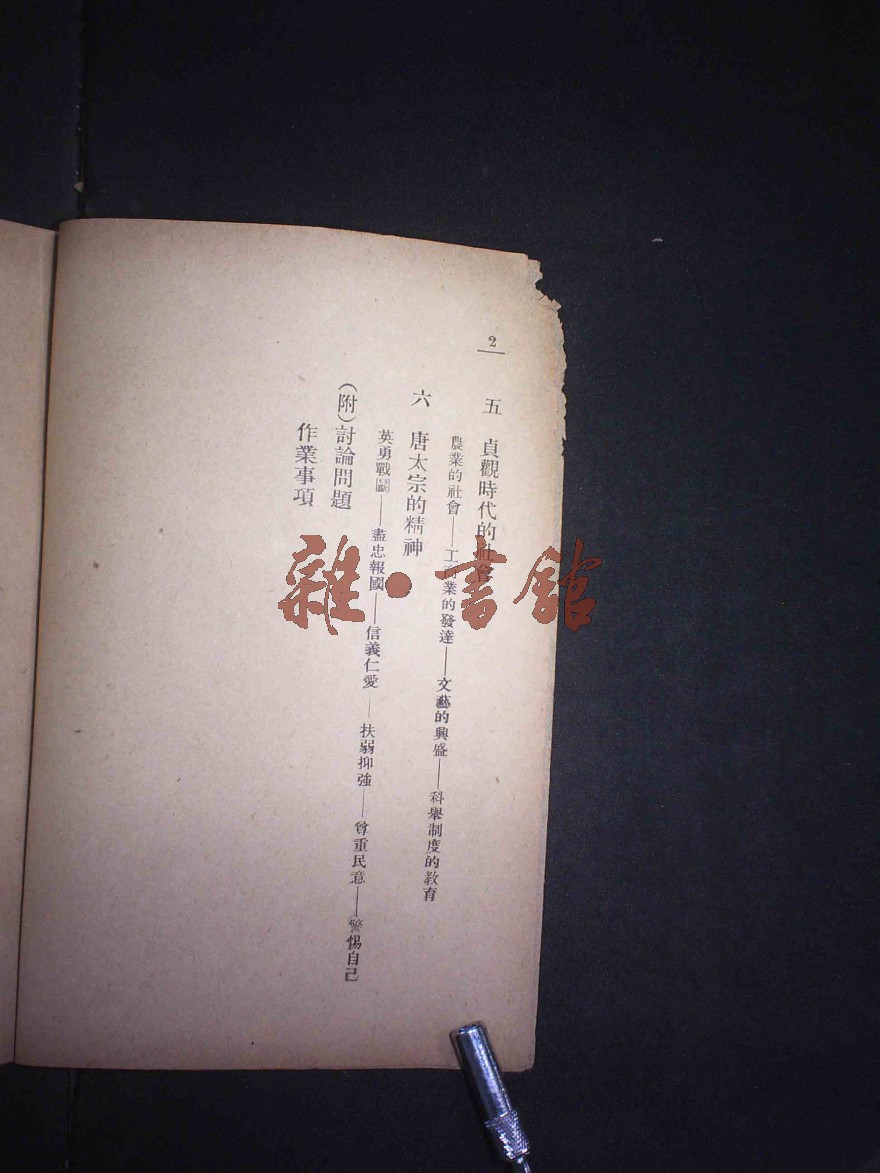 2
五 貞觀時代的社會
農業的社會——工商業的發達——文藝的興盛——科舉制度的教育
六 唐太宗的精神
英勇戰鬭——盡忠報國——信義仁愛——扶弱抑強——尊重民意——警惕自己
(附)討論問題
作業事項
雜·書館